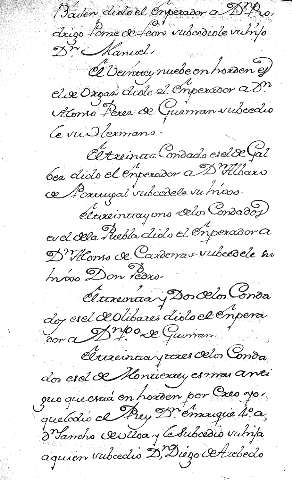 Bailen diolo el Enperador a Dn Ro-
drigo Ponse de Leon subcediole su hijo
Dn Manuel.
El Veinte y nuebe en horden es
el de Orgas diolo el Enperador a Dn
Alonso Perez de Guzman subcedio
le su Hermano.
El treinta Condado es el de Gel
bes diolo el Enperador a Dn Albaro
de Portugal subcedele su hixo.
El treinta y uno de los Condados
es el de la Puebla diolo el Enperador a
Dn Alonso de Cardenas subcedele su
hixo Don Pedro.
El treinta y Dos de los Conda
dos es el de Olibares diolo el Enpera
dor a Dn Po de Guzman.
El treinta y tres de los Conda
dos es el de Monterey es mas anti
guo que está en horden por Creo yo,
que lo dio el Rey Dn Enrrique 4o a
Dn Sancho de Ulloa y le Subcedio su hija
a quien subcedio Dn Diego de Azebedo